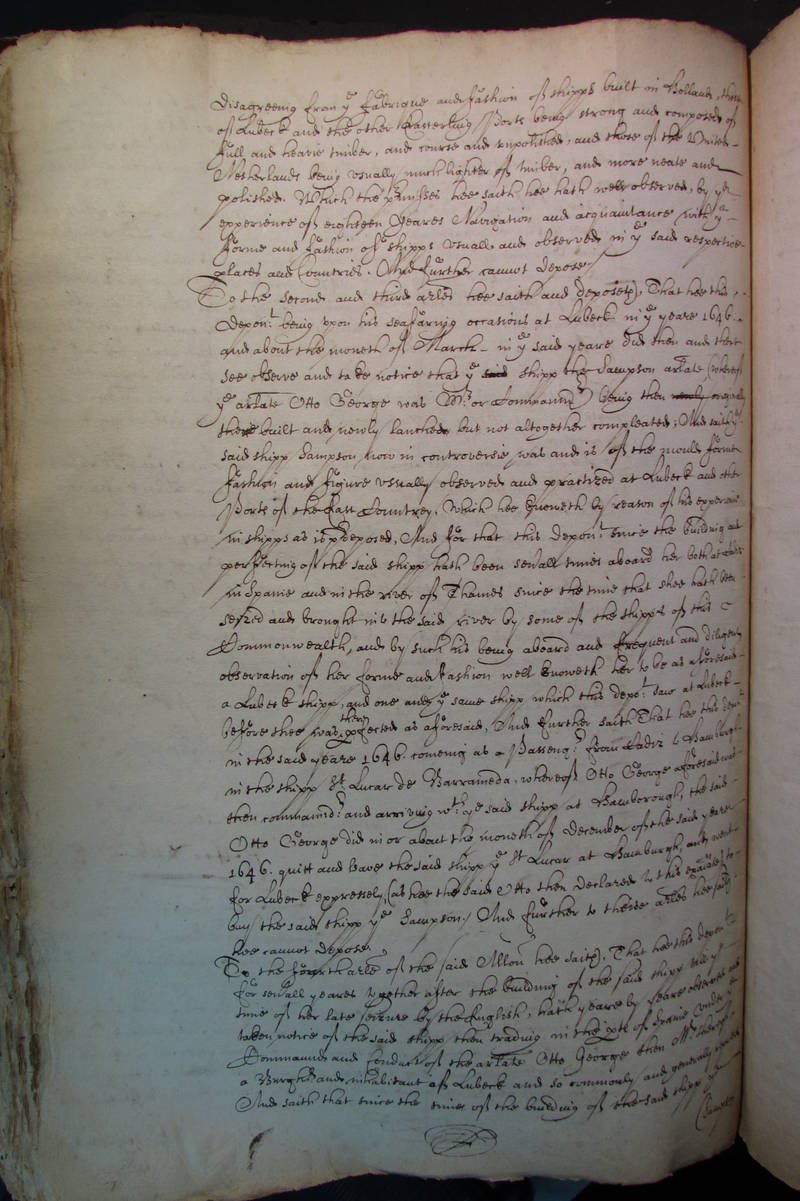 disagreeing from ye fabrique and fashion of shipps built in Holland, those
of Lubeck and the other Easterling Ports being strong and composed of
full and heavie timber, and course and unpolished, and those of the United
Netherlands being usually much lighter of timber, and more neate and
polished. Which the premisses hee saith hee hath well observed, by ye
experience of eighteen yeares Navigation and acquaintance with ye
forme and fashion of shipps usuall and observed in ye said respective
places and Countries. And further cannot depose/
To the second and third arles hee saith and deposeth, That hee this
Depont being upon his seafaring occations at Lubeck in ye yeare 1646
and about the moneth of March in ye said yeare did then and there
see observe and take notice that ye said shipp the Sampson arlate (whereof
ye arlate Otto George was Mr or Commannder) being then newly originally
there built and newly lanched but not altogether compleated; And saith ye
said shipp Sampson now in controversie was and is of the mould forme
fashion and figure usually observed and practized at Lubeck and other
Ports of the East Countrey, Which hee knoweth by reason of his experience
in shipps as is predeposed, And for that this Deponт since the building and
perfecting of the said shipp hath been severall times aboard her both at
in Spaine and in the river of Thames since the time that shee hath been
seized and brought into the said river by some of the shipps of this
Commonwealth, and by such his being aboard and frequent and diligent
observation of her forme and fashion well knoweth her to be as aforesaid
a Lubeck shipp, and one and ye same shipp which this depot saw at Lubeck
before shee was then perfected as aforesaid, And further saith That hee this dept
in the said yeare 1646. comeing as a Passengr from Cadiz to Hamburgh
in the shipp St Lucar de Barrameda, whereof Otto George aforesaid was
then commandr and arriving wth ye said shipp at Hamborough, the said
Otto George did in or about the moneth of December of the said yeare
1646. quitt and leave the said shipp ye St Lucar at Hamburgh, and went
for Lubeck expressely, (as hee the said Otto then declared to this examinate) to
buy the said shipp ye Sampson./ And further to theise arles hee saith
hee cannot depose.
To the fourth arle of the said Allon hee saith, That hee this depont
for severall yeares together after the building of the said shipp till ye
time of her late seizure by the English, hath yeare by yeare observed and
taken notice of the said shipp then trading in the ports of Spaine under ye
Command and conduct of the arlate Otto George then Mr thereof
a Burgher and inhabitant of Lubeck and so commonly and generally reputed
And saith that since the time of the building of the said shipp ye
Sampson